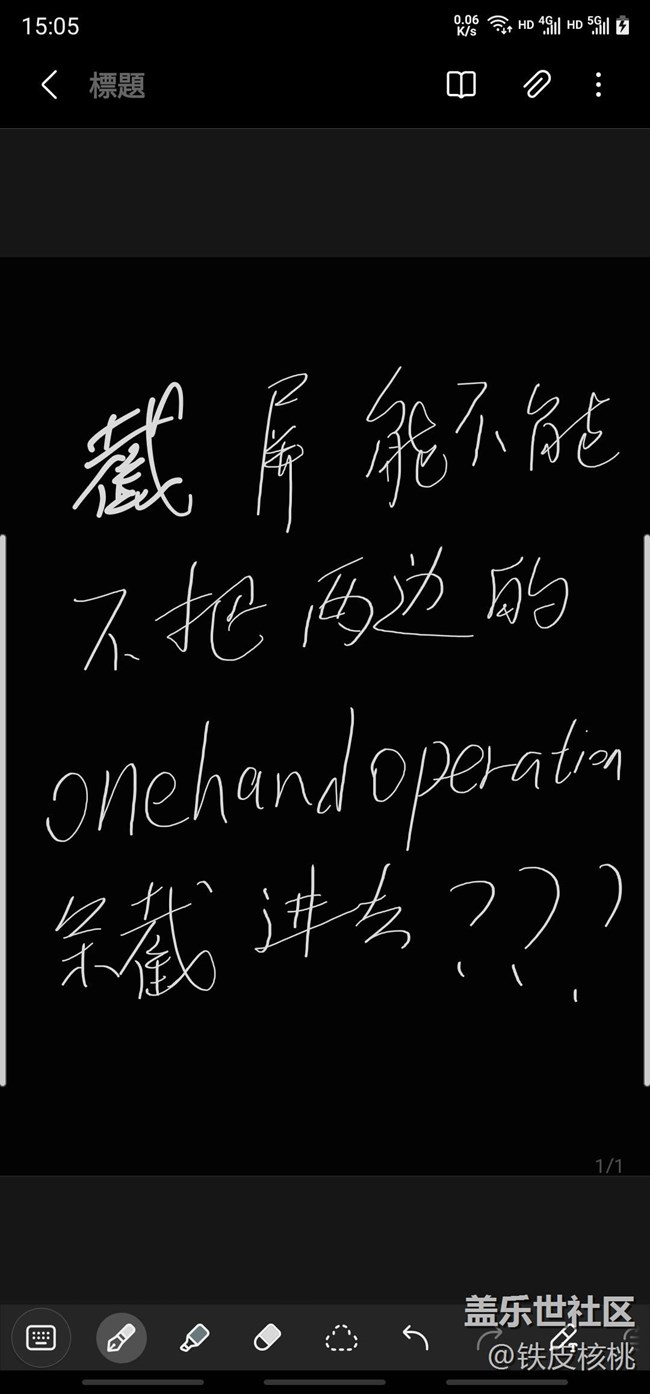 15:05
0.06
K/s
HD 4G HD 5G
標題
截屏能不能
不把两边的
onehand operation
条截进去???
1/1
盖乐世社区
@铁皮核桃